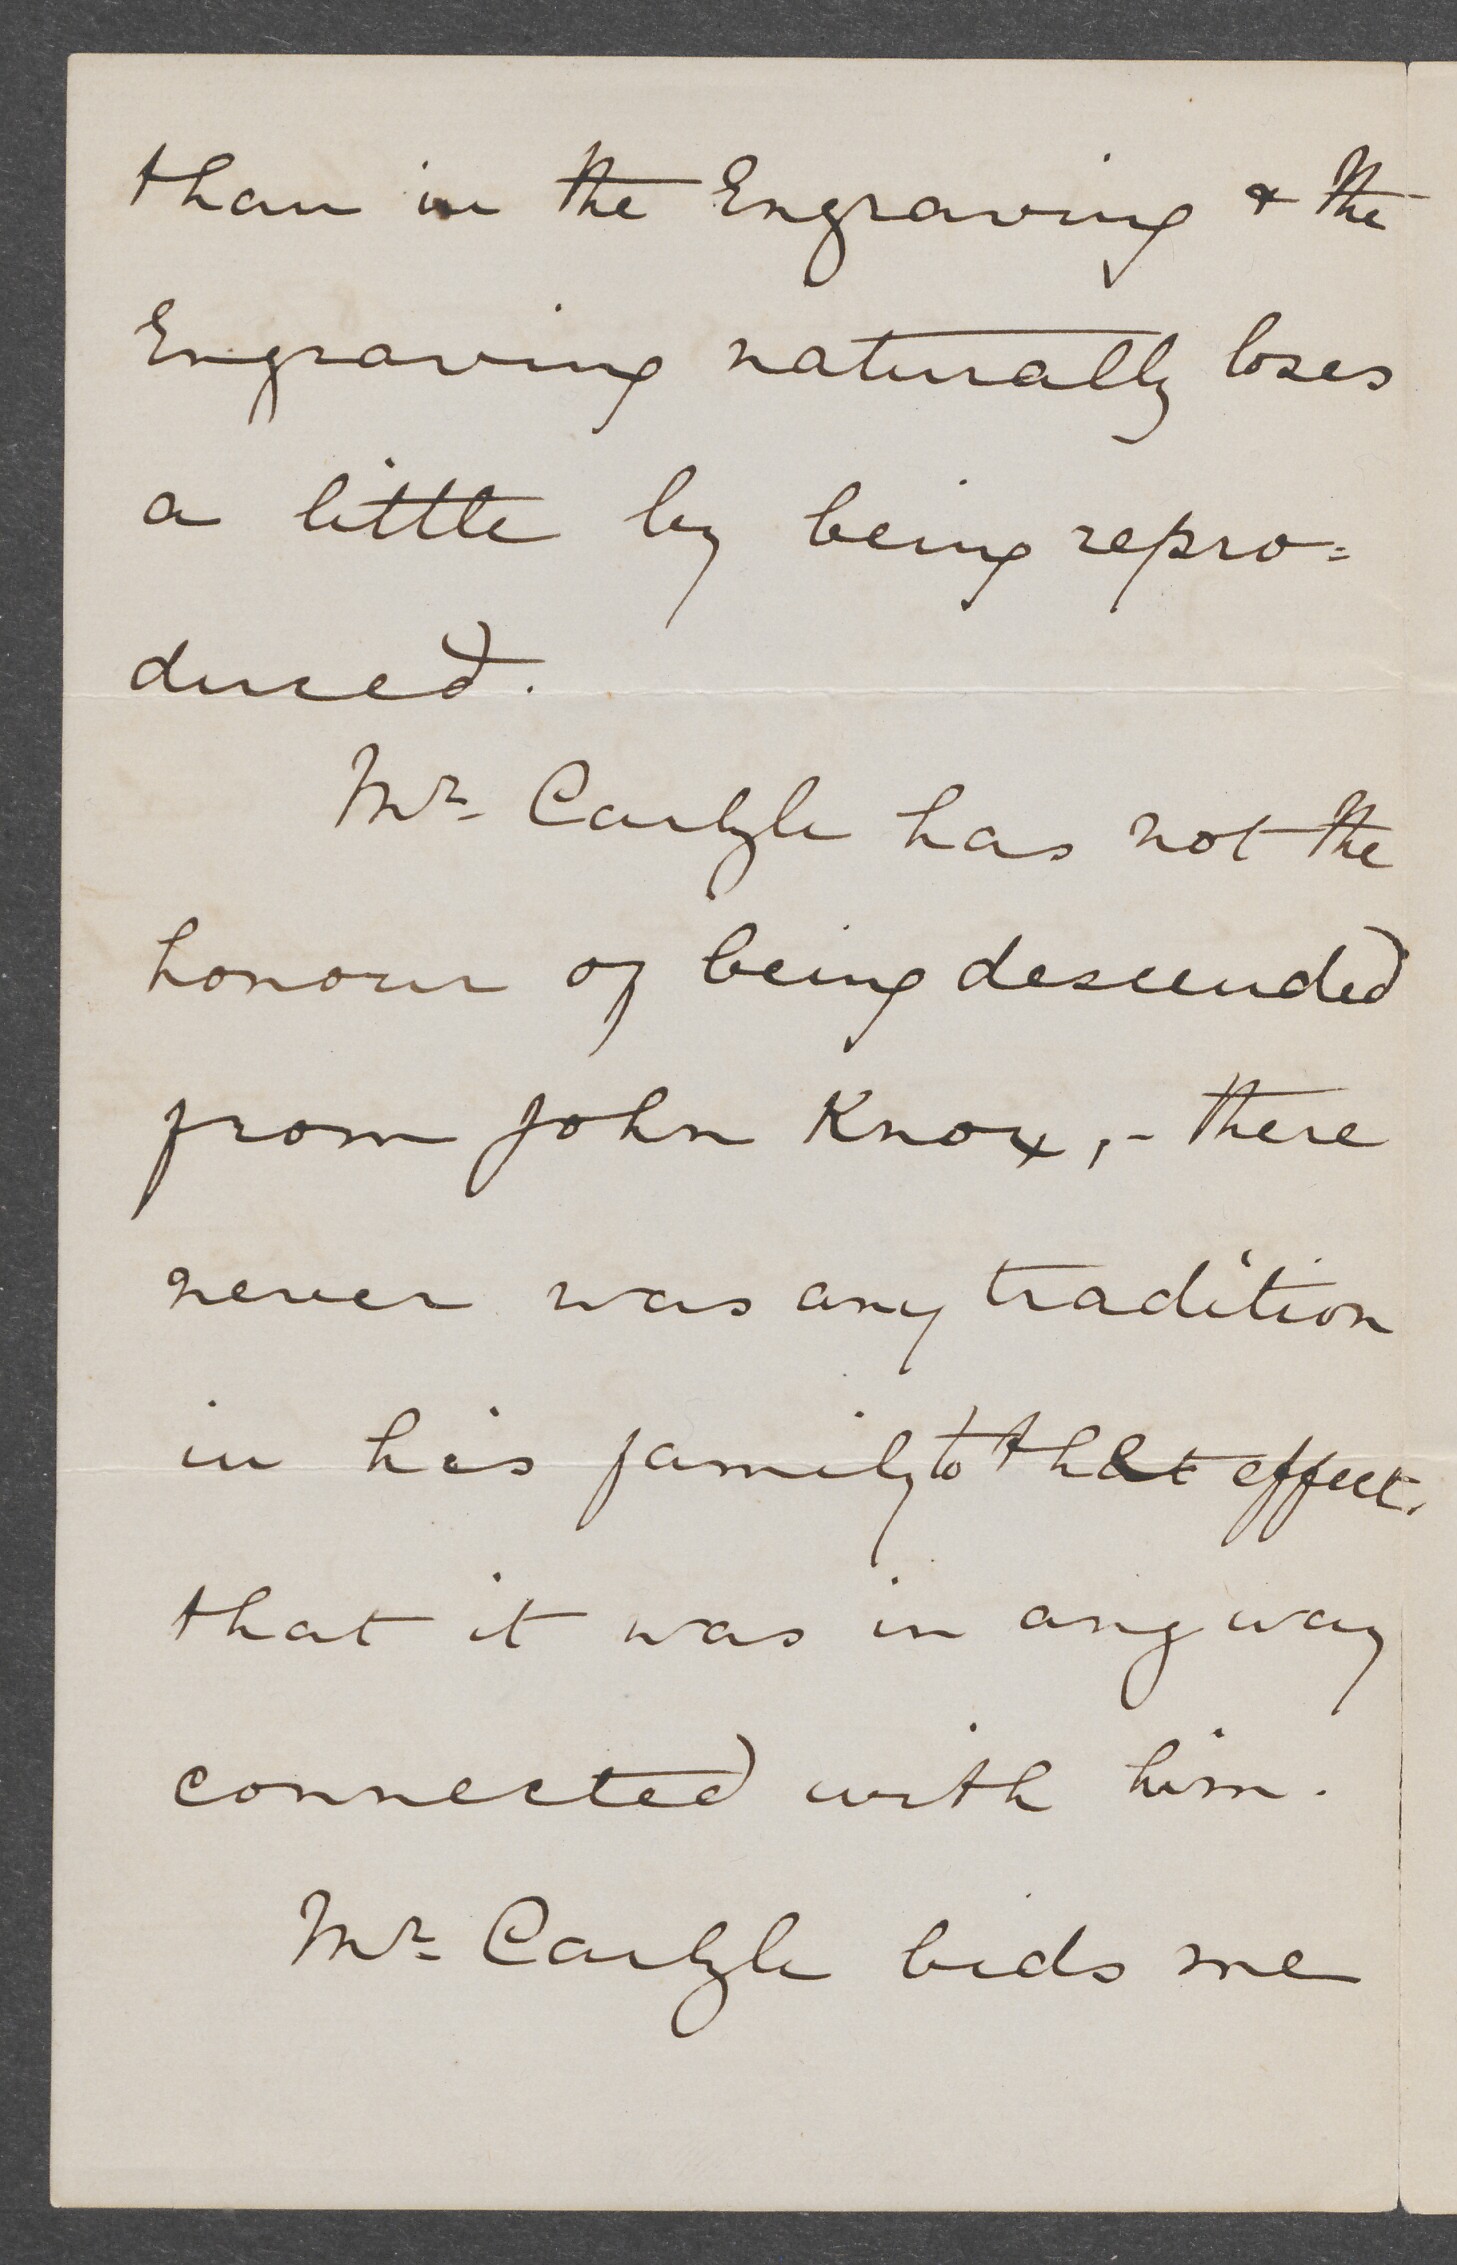 than in the Engraving & the
Engraving naturally loses
a little by being repro=
duced.
Mr. Carlyle has not the
honour of being descended
from John Knox, - there
never was any tradition
in his family to that effect,
that it was in any way
connected with him.
Mr. Carlyle bids me